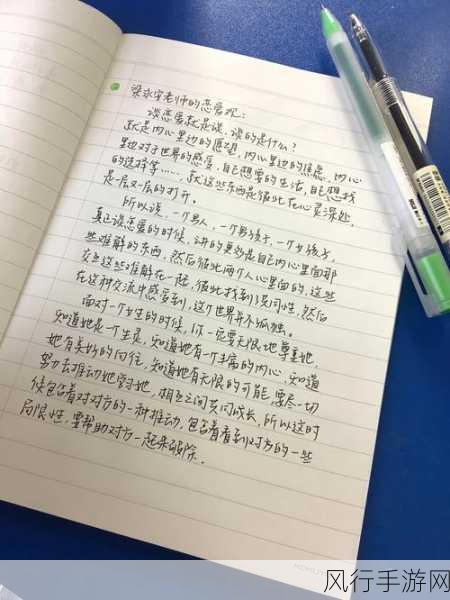 梁永安老师的恋爱观:
谈恋爱就是谈,谈的是什么?
就是内心里边的愿望,内心里边的信息,内心
里边对于世界的感受,自己想要的生活,自己想找
的选择等……,就这些东西是彼此在心灵深处,
是层又层的打开。
所以说,一个男人,一个男孩子,一个女孩子,
真正谈恋爱的时候,讲的更多是自己内心里面那
些难解的东西,然后彼此两个人心里面的,这些
交互这些难解在一起,彼此找到灵同性,然后
在这种交流中感受到,这个世界并不孤独。
面对一个女生的时候,你一定要无限地尊重她,
知道她是一个生灵,知道她有一个丰富的内心,知道
她有美好的向往,知道她有无限的可能,要尽一切
努力去推动她爱她,相互之间去问成长,所以这时
候包含着对对方的一种推动,包含着看到对方的一些
局限性,要帮助对方一起来破除。
风行手游网